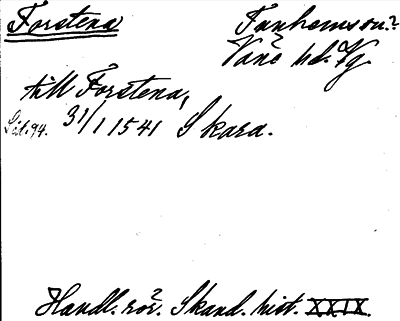 Forstena Funhems sn.?
Väne hd. Vg.
till Forstena,
Sid. 94. 31/1 1541 Skara.
Handl. rör. Skand. hist. XXIX.